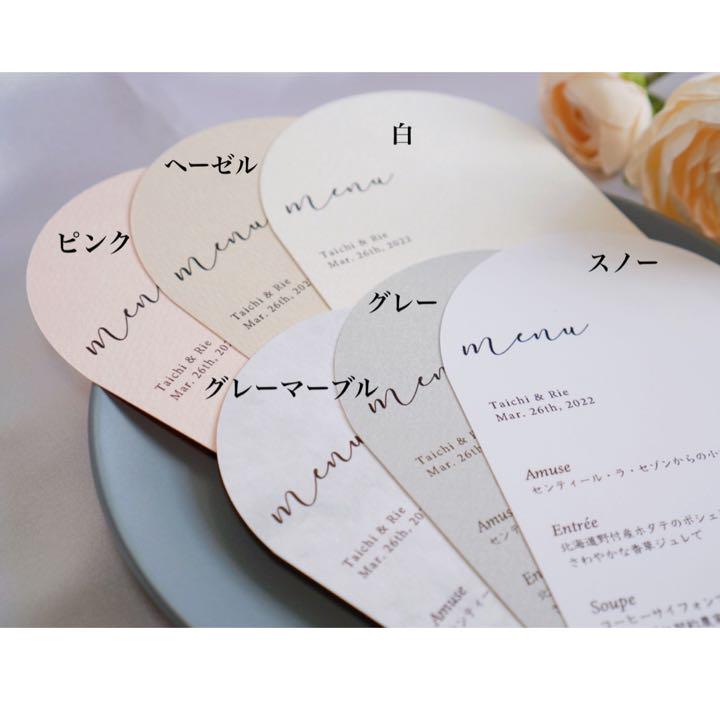 白
menu
Taichi & Rie
Mar. 26th, 2022
ヘーゼル
menu
Taichi & Rie
Mar. 26th, 202
ピンク
men
Taichi & Rie
Mar. 26th, 20
スノー
menu
Taichi & Rie
Mar. 26th, 2022
Amuse
センティール・ラ・セゾンからの小
Entrée
北海道野付産ホタテのポシェ
さわやかな香草ジュレで
Soupe
コーヒーサイフォン
グレー
men
Taichi &
Mar. 26th
Amus
セン
En
グレーマーブル
menu
Taichi & Rie
Mar. 26th, 20
Amuse
センティー